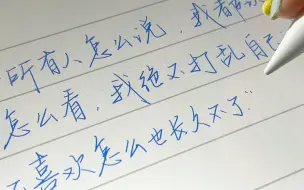 所有人怎么说，我都
怎么看，我绝不打乱自己
喜欢怎么也长久不了"